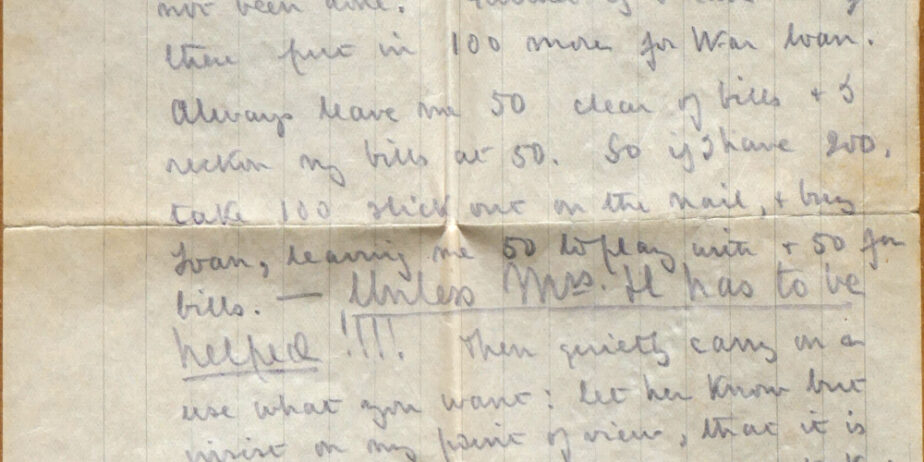 not been done.
then put in 100 more for War Loan.
Always leave me 50 clear of bills + I
reckon my bills at 50. So if I have 200,
take 100 slick out on the nail, + buy
Loan, leaving me 50 to play with + 50 for
bills. — Unless Mrs. H has to be
helped !!!! Then quietly carry on &
use what you want: let her know but
insist on my point of view, that it is